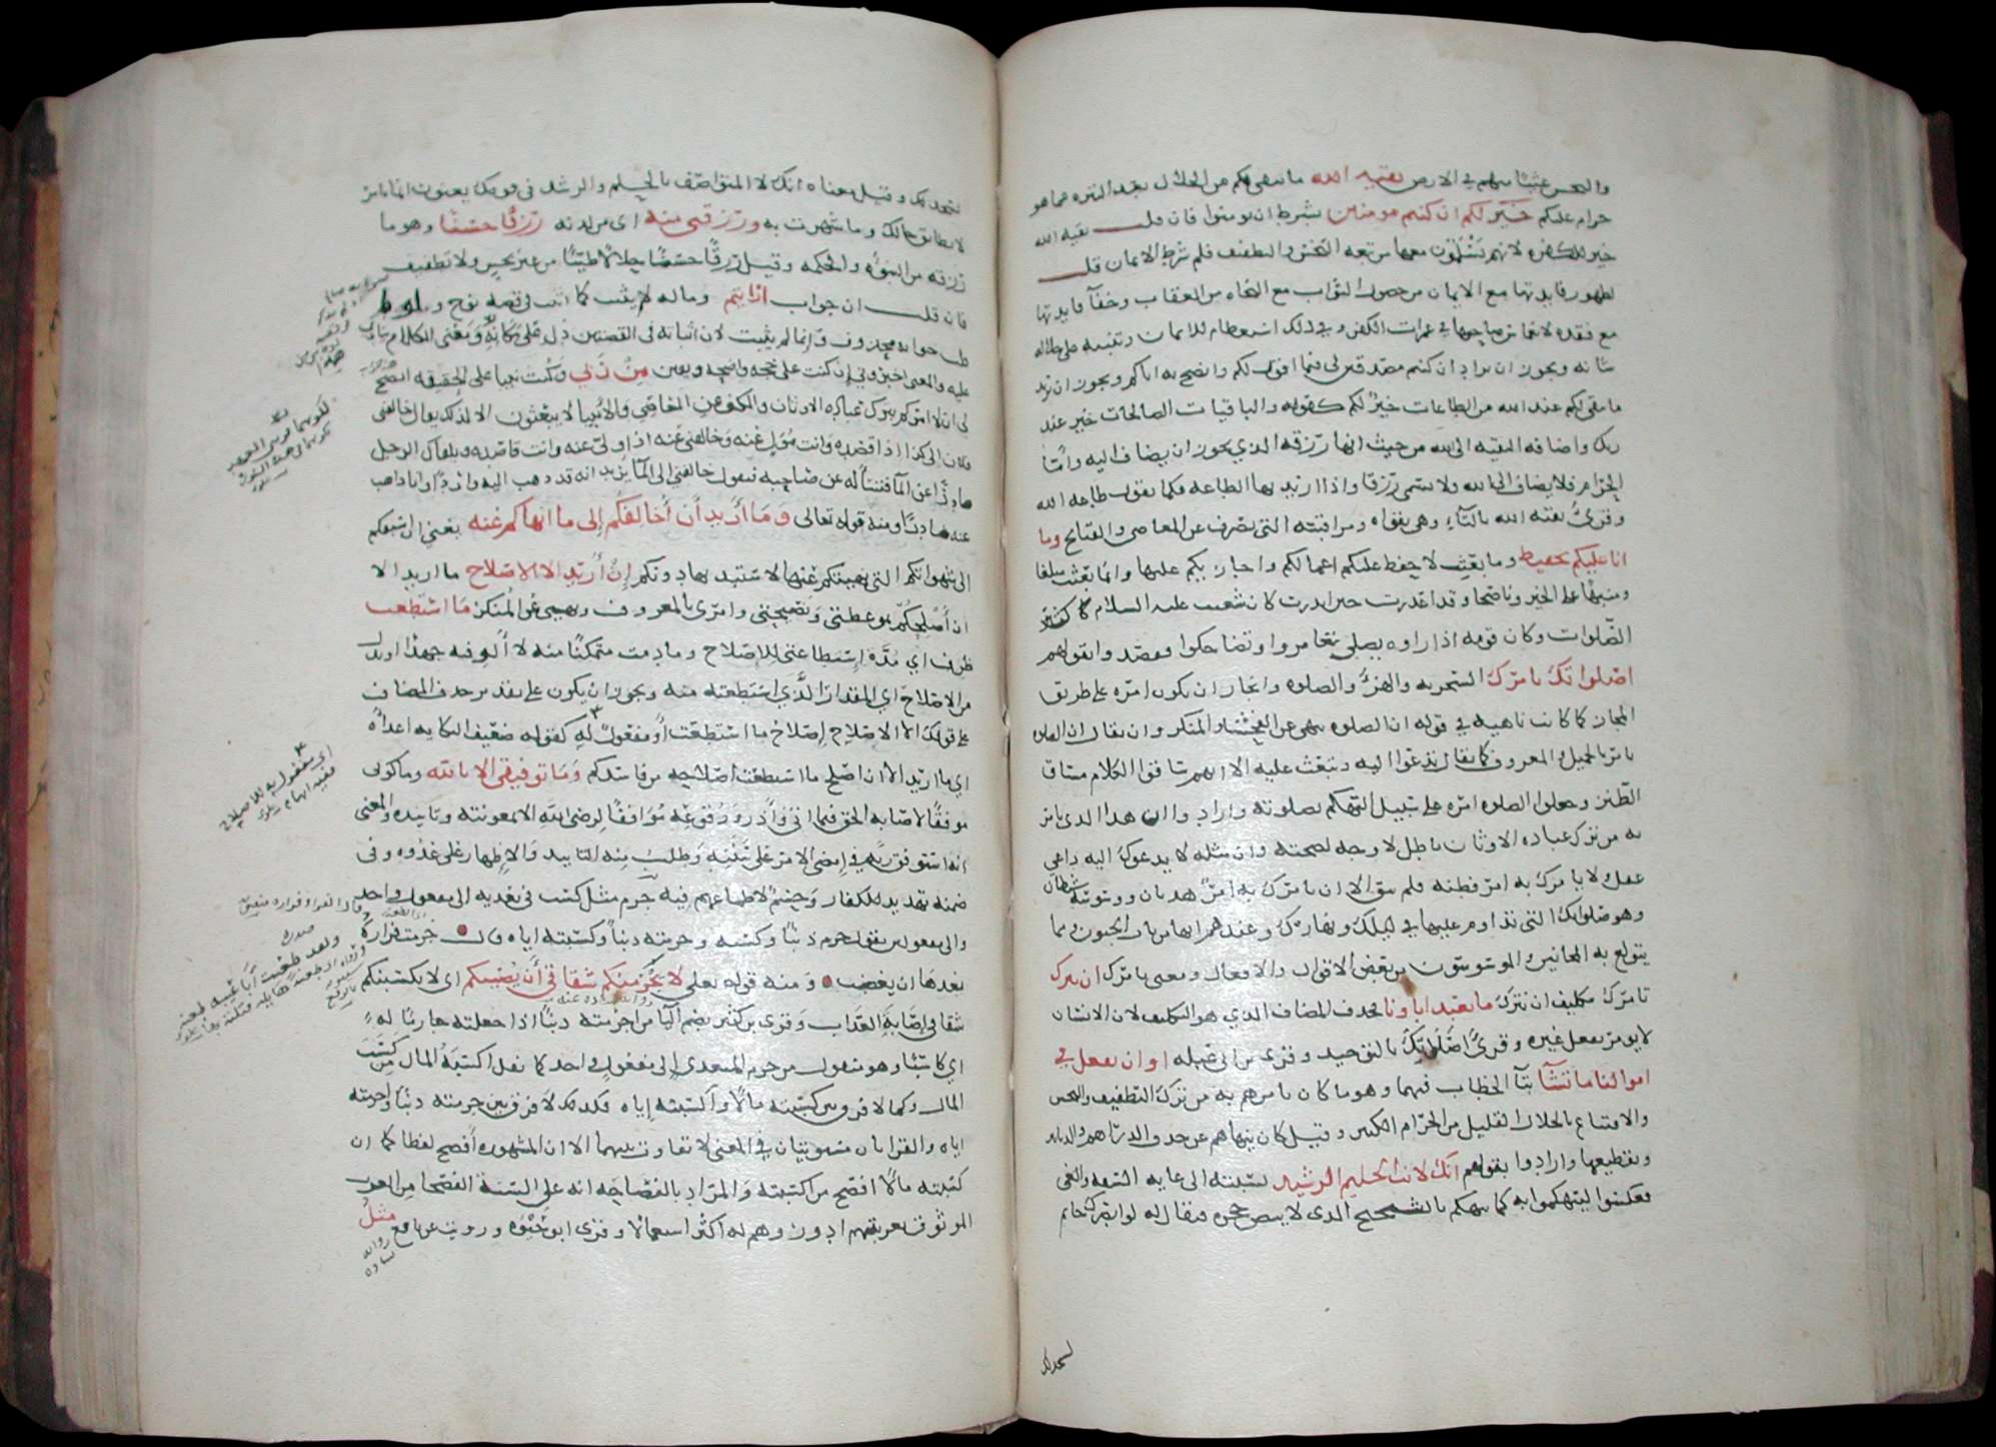 والبخس عيثا منهم في الارض بقيت الله ما يبقى لكم من الحلال بعد التنزه عما هو
حرام عليكم خير لكم ان كنتم مومنين بشرط ان تومنوا فان قلت بقية الله
خير للكفرة لانهم يسلمون معها من تبعة البخس والتطفيف فلم شرط الايمان قلت
لظهور فايدتها مع الايمان من حصول الثواب مع النجاه من العقاب وخفآ فايدتها
مع فقده لانغماس صاحبها في غمرات الكفر وفي ذلك استعظام للايمان وتنبيه على جلالة
شانه ويجوز ان يراد ان كنتم مصدقين لي فيما اقول لكم وانصح به اياكم ويجوز ان يريد
ما يبقى لكم عند الله من الطاعات خير لكم كقوله والباقيات الصالحات خير عند
ربك واضافه البقيه الى الله من حيث انها رزقه الذي يجوز ان يضاف اليه وامّا
الحرام فلا يضاف الى الله ولا يسمى رزقا واذا اريد بها الطاعه فكما يقول طاعه الله
وقرئ تقيه الله بالتآء وهي تقواه ومراقبته التي تصرف عن المعاصي والقبايح وما
انا عليكم بحفيظ وما بعثت لاحفظ عليكم اعمالكم واجازيكم عليها وانما بعثت مبلغا
ومنبها على الخير وناصحا وقد اعذرت حين انذرت كان شعيب عليه السلام كثير
الصّلوات وكان قومه اذا راوه يصلي تغامزوا وتضاحكوا فقصدوا بقولهم
اصلواتك تامرك السخريه والهزؤ والصلوه وان جاز ان تكون امره على طريق
المجاز كما كانت ناهيه في قوله ان الصلوه تنهى عن الفحشاء والمنكر وان يقال ان الصلوه
تامر بالجميل والمعروف كما يقال تدعوا اليه وتبعث عليه الا انهم ساقوا الكلام مساق
الطّنز وجعلوا الصلوه امره على سبيل التهكم بصلوته وارادوا ان هذا الذى تامر
به من ترك عباده الاوثان باطل لا وجه لصحته وان مثله لا يدعوك اليه داعي
عقل ولا يامرك به امر فطنه فلم يبق الا ان يامرك به امر هذيان ووسوسة شيطان
وهو صلواتك التي تداوم عليها في ليلك ونهارك وعندهم انها من باب الجنون ومما
يتولع به المجانين والموسوسون من بعض الاقوال والافعال ومعنى تامرك ان نترك
تامرك بتكليف ان نترك ما يعبد اباونا فحذف المضاف الذي هو التكليف لان الانسان
لا يومر بفعل غيره وقرئ اصلاتك بالتوحيد وقرى ابن ابي عبله او ان تفعل في
اموالنا ما تشآ بتآ الخطاب فيهما وهو ما كان يامرهم به من ترك التطفيف والبخس
والاقتناع بالحلال القليل من الحرام الكثير وقيل كان ينهاهم عن حذف الدراهم والدنانير
وتقطيعها وارادوا بقولهم انك لانت الحليم الرشيد نسبته الى غايه السفه والغي
فعكسوا ليتهكموا به كما يتهكم بالشحيح الذى لا يبض حجره فيقال له لو ابصرك حاتم
لسجد لك
لسجد لك وقيل معناه انك لا المتواصف بالحلم والرشد في قومك يعنون ان ما تامر
لا يطابق حالك وما شهرت به ورزقني منه اى من لدنه رزقا حسنا وهو ما
رزقه من النبوه والحكمه وقيل رزقا حسنا حلالا طيبا من غير بخس ولا تطفيف
فان قلت اين جواب ارايتم وما له لم يثبت كما اثبت في قصه نوح ولوط
قلت جوابه محذوف وانما لم يثبت لان اثباته في القصتين دل على مكانه ومعنى الكلام ينادي
عليه والمعنى اخبروني ان كنت على حجه واضحه ويقين من ربي وكنت نبيا على الحقيقه ايصح
لى ان لا امركم بترك عباده الاوثان والكف عن المعاصي والانبيا لا يبعثون الا لذلك يقال خالفني
فلان الى كذا اذا قصده وانت مول عنه وخالفني عنه اذا ولى عنه وانت قاصده ويلقاك الرجل
صادرا عن المآ فتسأله عن صاحبه فيقول خالفني الى المآ يريد انه قد ذهب اليه واردا وانا ذاهب
عنه صادرا ومنه قوله تعالى وما أريد أن أخالفكم إلى ما انهاكم عنه يعني ان اسبقكم
الى شهواتكم التي نهيتكم عنها لاستبد بها دونكم إن أريد الا الاصلاح ما اريد الا
ان أصلحكم بموعظتي ونصيحتي وامرى بالمعروف ونهيي عن المنكر ما استطعت
ظرف اي مدة إستطاعتي للإصلاح وما دمت متمكنا منه لا آلو فيه جهدا او بدل
من الاصلاح اي المقدار الذي استطعته منه ويجوز ان يكون على تقدير حذف المضاف
على قولك الا الاصلاح إصلاح ما استطعت أو مفعول له كقوله ضعيف النكايه اعداءه
اي ما اريد الا ان اصلح ما استطعت اصلاحه من فاسدكم وما توفيقي الا بالله وما كوني
موفقا لاصابه الحق فيما اتي وأذر ووقوعه موافقا لرضى الله الا بمعونته وتاييده والمعنى
انه استوفق ربه في إمضى الامر على سننه وطلب منه التاييد والإظهار على عدوه وفى
ضمنه تهديد للكفار وحسم لاطماعهم فيه جرم مثل كسب فى تعديه الى مفعول واحد
والى مفعولين يقول جرم ذنبا وكسبه وجرمته ذنبا وكسبته اياه قال جرمت فزارة
بعدها ان يغضبوا ومنه قوله تعلى لا يجرمنكم شقاقي أن يصيبكم اى لا يكسبنكم
شقاقي إصابة العذاب وقرى ابن كثير بضم اليا من اجرمته ذنبا اذا جعلته جارما له
اي كاسبا وهو منقول من جرم المتعدى إلى مفعول واحد كما نقل اكسبه المال من كسب
المال وكما لا فرق بين كسبته مالا واكسبته إياه فكذلك لا فرق بين جرمته ذنبا واجرمته
اياه والقراتان مستويتان في المعنى لا تفاوت بينهما الا ان المشهوره أفصح لفظا كما ان
كسبته مالا افصح من اكسبته والمراد بالفصاحه انه على السنة الفصحا من العرب
الموثوق بعربيتهم ادور وهم له اكثر استعمالا وقرى ابو حيوه ورويت عن نافع مثل